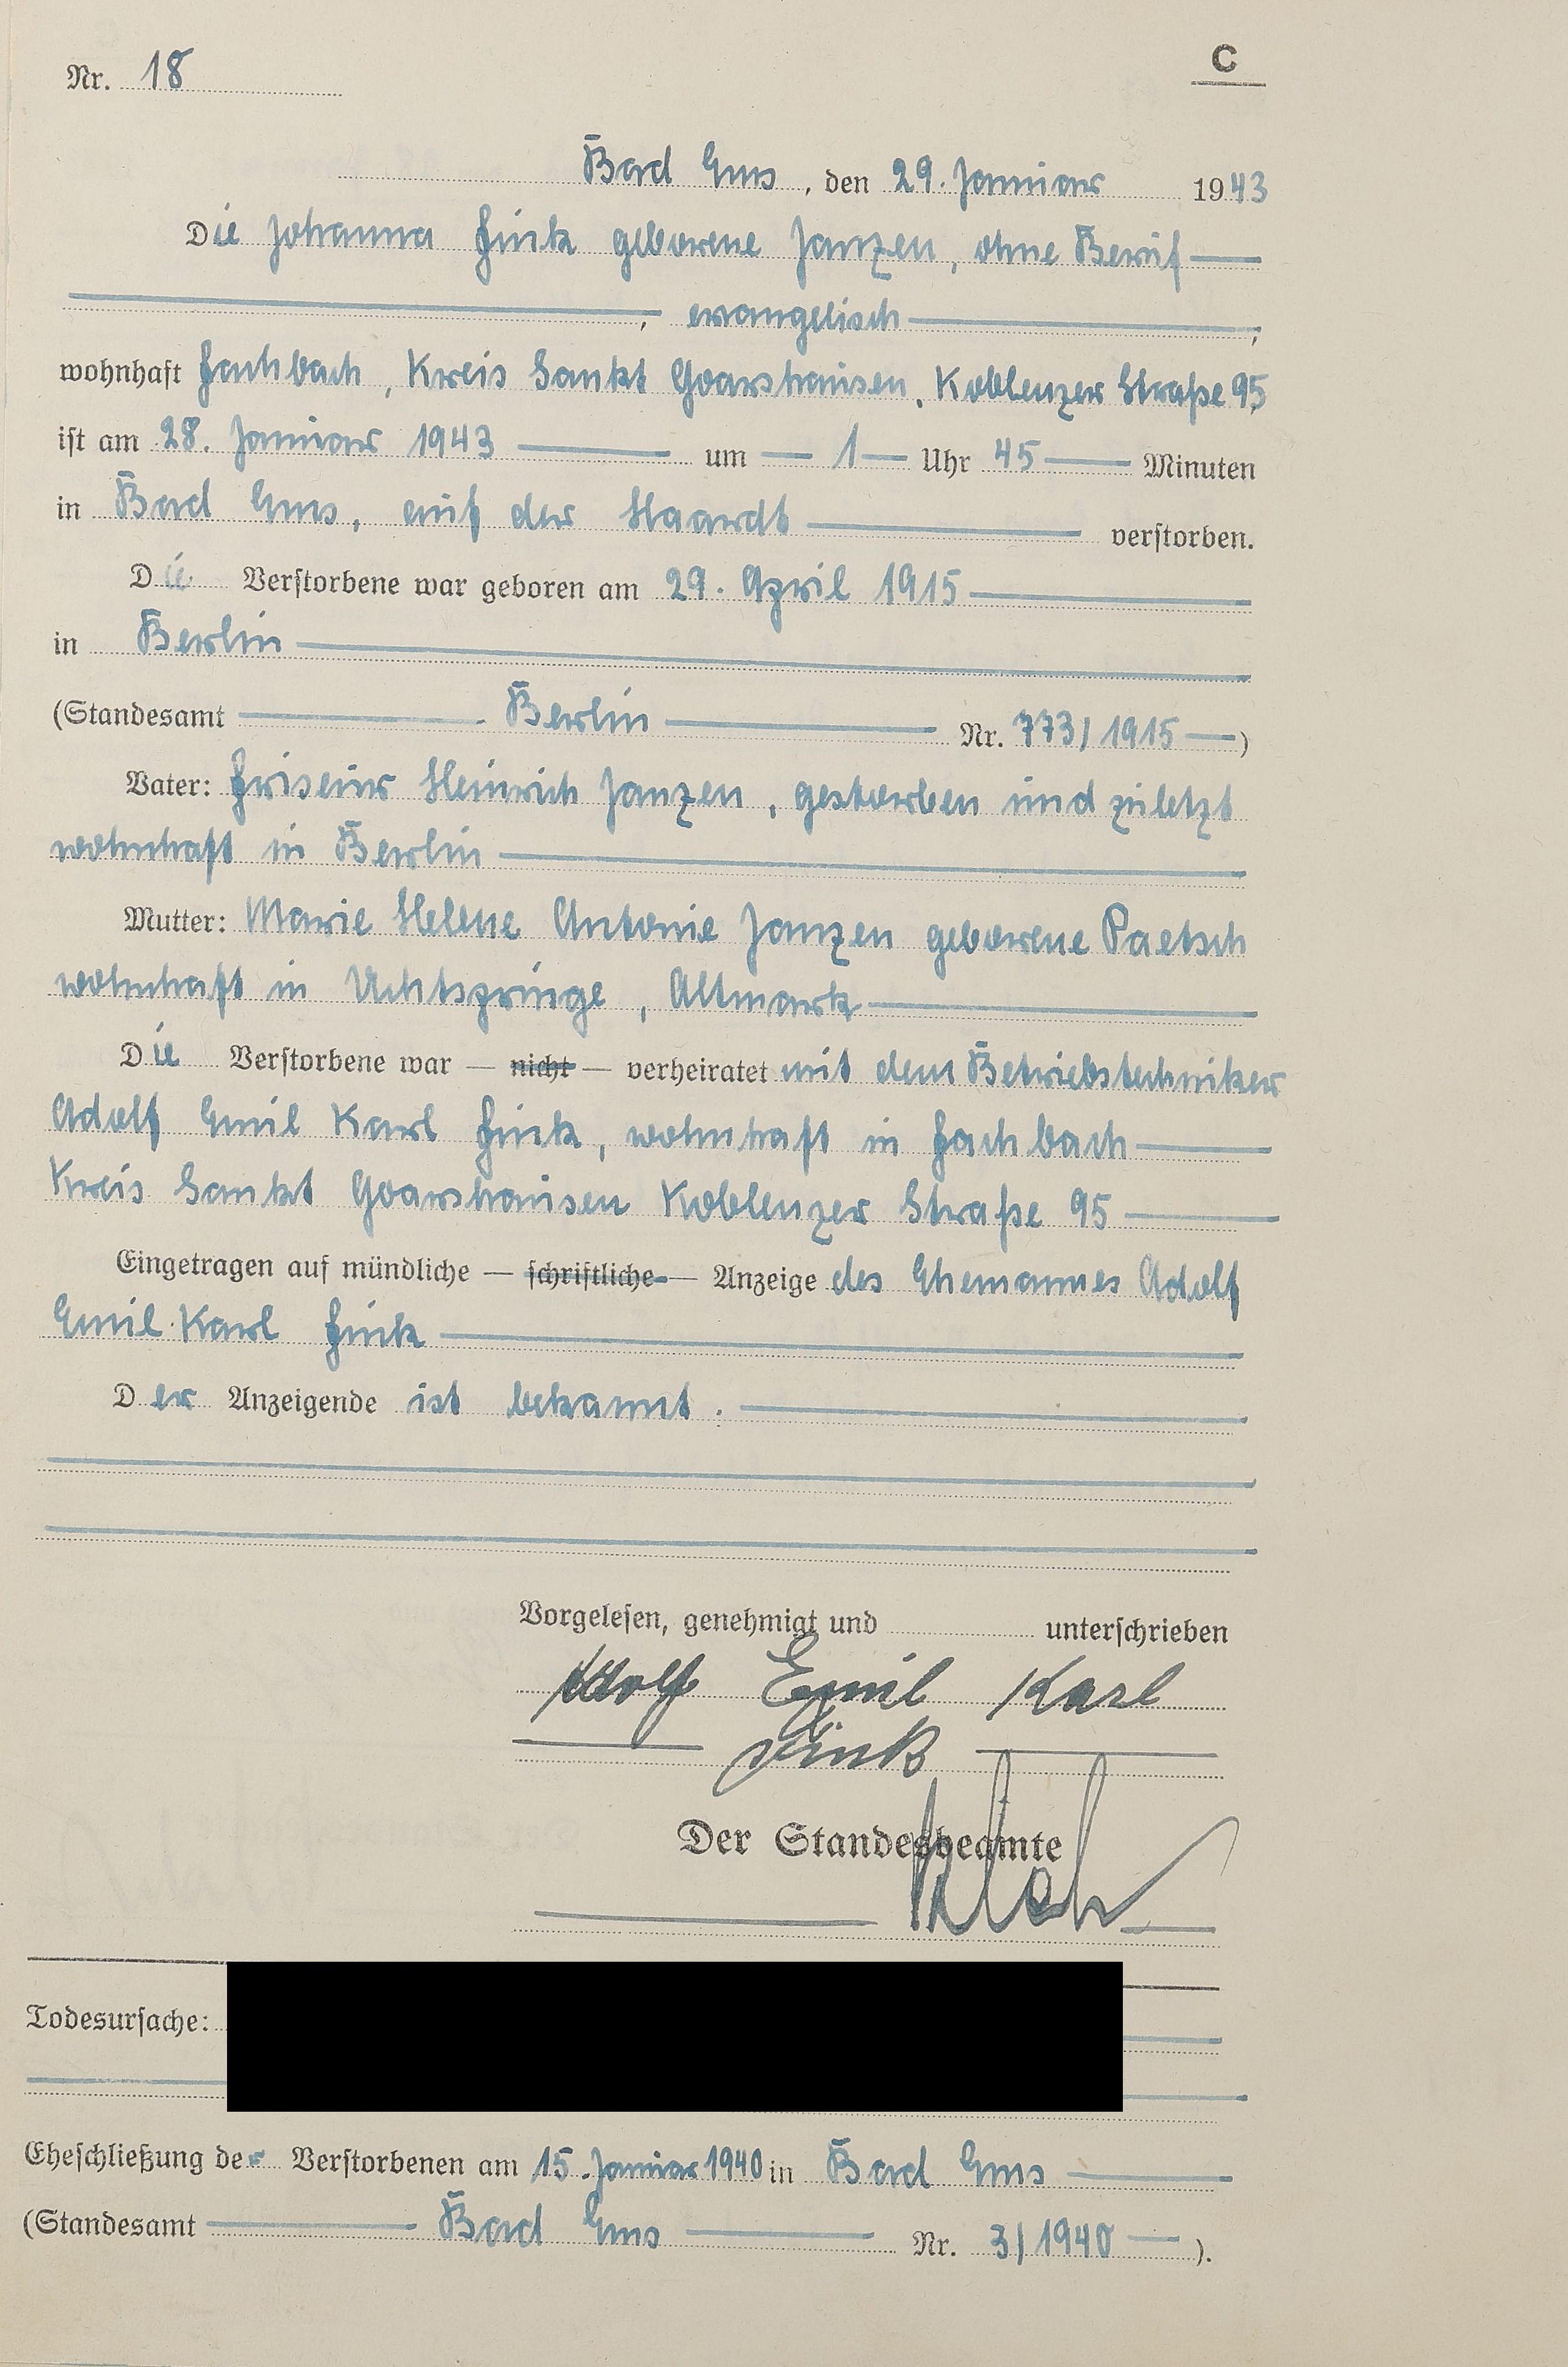 Nr. 18
C
Bad Ems, den 29. Januar 1943
Die Johanna Fink geborene Janzen, ohne Beruf
, evangelisch ,
wohnhaft Fachbach, Kreis Sankt Goarshausen, Koblenzer Straße 95
ist am 28. Januar 1943 um 1 Uhr 45 Minuten
in Bad Ems, auf der Haardt verstorben.
Die Verstorbene war geboren am 29. April 1915
in Berlin
(Standesamt Berlin Nr. 773/1915)
Vater: Friseur Heinrich Janzen, gestorben und zuletzt
wohnhaft in Berlin
Mutter: Marie Helene Antonie Janzen geborene Paetsch
wohnhaft in Uchtspringe, Altmark
Die Verstorbene war — nicht — verheiratet mit dem Betriebstechniker
Adolf Emil Karl Fink, wohnhaft in Fachbach
Kreis Sankt Goarshausen Koblenzer Straße 95
Eingetragen auf mündliche — schriftliche — Anzeige des Ehemannes Adolf
Emil Karl Fink
Der Anzeigende ist bekannt.
Vorgelesen, genehmigt und unterschrieben
Adolf Emil Karl
Fink
Der Standesbeamte
Todesursache:
Eheschließung der Verstorbenen am 15. Januar 1940 in Bad Ems
(Standesamt Bad Ems Nr. 3/1940).